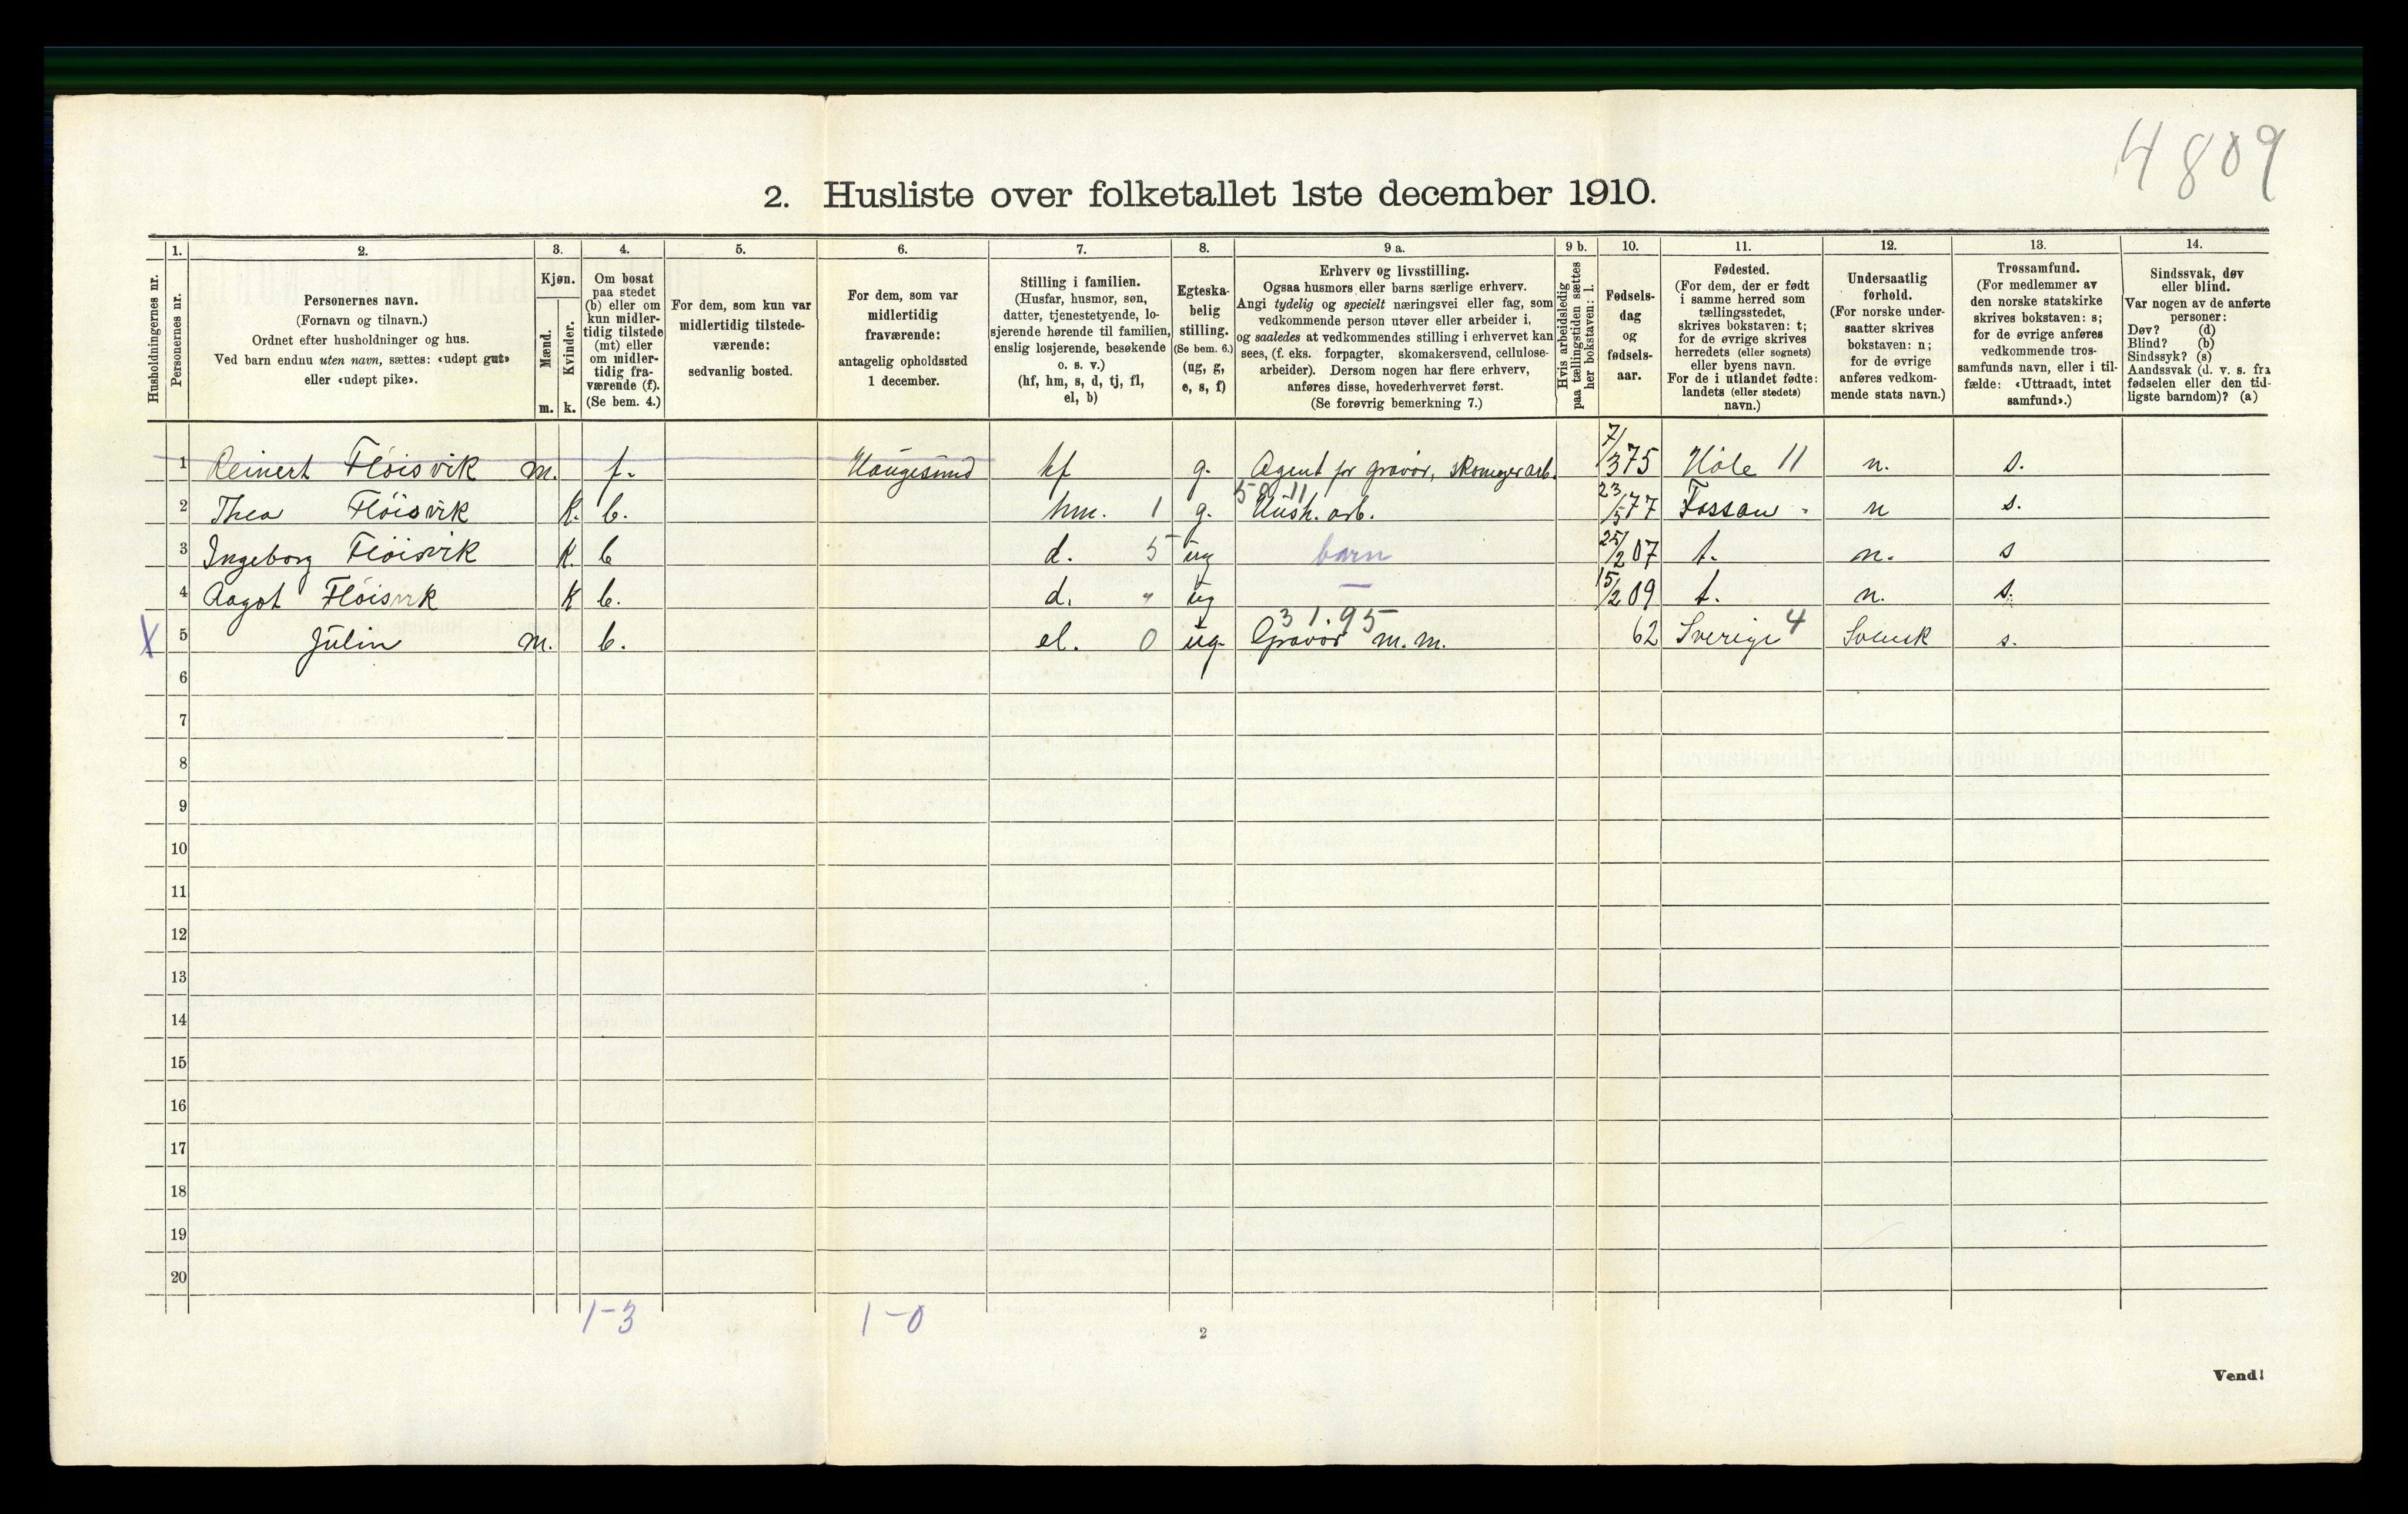 4809
2. Husliste over folketallet 1ste december 1910.
Husholdningernes nr.
1. Personernes nr.
2. Personernes navn.
(Fornavn og tilnavn.)
Ordnet efter husholdninger og hus.
Ved barn endnu uten navn, sættes: «udøpt gut»
eller «udøpt pike».
3. Kjøn.
Mænd. m.
Kvinder. k.
4. Om bosat
paa stedet
(b) eller om
kun midler-
tidig tilstede
(mt) eller
om midler-
tidig fra-
værende (f).
(Se bem. 4.)
5. For dem, som kun var
midlertidig tilstede-
værende:
sedvanlig bosted.
6. For dem, som var
midlertidig
fraværende:
antagelig opholdssted
1 december.
7. Stilling i familien.
(Husfar, husmor, søn,
datter, tjenestetyende, lo-
sjerende hørende til familien,
enslig losjerende, besøkende
o. s. v.)
(hf, hm, s, d, tj, fl,
el, b)
8. Egteska-
belig
stilling.
(Se bem. 6.)
(ug, g,
e, s, f)
9 a. Erhverv og livsstilling.
Ogsaa husmors eller barns særlige erhverv.
Angi tydelig og specielt næringsvei eller fag, som
vedkommende person utøver eller arbeider i,
og saaledes at vedkommendes stilling i erhvervet kan
sees, (f. eks. forpagter, skomakersvend, cellulose-
arbeider). Dersom nogen har flere erhverv,
anføres disse, hovederhvervet først.
(Se forøvrig bemerkning 7.)
9 b. Hvis arbeidsledig
paa tællingstiden sættes
her bokstaven: l.
10. Fødsels-
dag
og
fødsels-
aar.
11. Fødested.
(For dem, der er født
i samme herred som
tællingsstedet,
skrives bokstaven: t;
for de øvrige skrives
herredets (eller sognets)
eller byens navn.
For de i utlandet fødte:
landets (eller stedets)
navn.)
12. Undersaatlig
forhold.
(For norske under-
saatter skrives
bokstaven: n;
for de øvrige
anføres vedkom-
mende stats navn.)
13. Trossamfund.
(For medlemmer av
den norske statskirke
skrives bokstaven: s;
for de øvrige anføres
vedkommende tros-
samfunds navn, eller i til-
fælde: «Uttraadt, intet
samfund».)
14. Sindssvak, døv
eller blind.
Var nogen av de anførte
personer:
Døv? (d)
Blind? (b)
Sindssyk? (s)
Aandssvak (d. v. s. fra
fødselen eller den tid-
ligste barndom)? (a)
1 Reinert Flöisvik m. f. Haugesund hf g. Agent for gravör, 7/3 75 Höle 11 n. s.
2 Thea Flöisvik K. b. hm. 1 g. Hush. arb. 23/5 77 Fossan n s.
3 Ingeborg Flöisvik K. b d. 5 ug barn 25/2 07 t. n. s
4 Aagot Flöisvik K b. d. " ug — 15/2 09 t. n. s.
31.95
X 5 Julin m. b. el. 0 ug. Gravör m.m. 62 Sverige 4 Svensk s.
6
7
8
9
10
11
12
13
14
15
16
17
18
19
20
1-3 1-0
2
Vend!